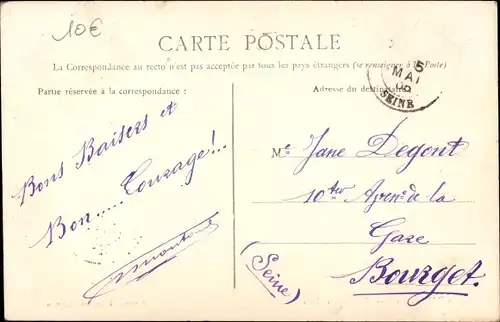 10€
CARTE POSTALE
La Correspondance au recto n'est pas acceptée par tous les pays étrangers (se renseigner à la Poste)
Partie réservée à la correspondance :
Adresse du destinataire
5
MAI
SEINE
Bons Baisers et
Bon..... Courage!...
Me Jane Degont
10 ter Aven. de la
Gare
Bourget.
(Seine)